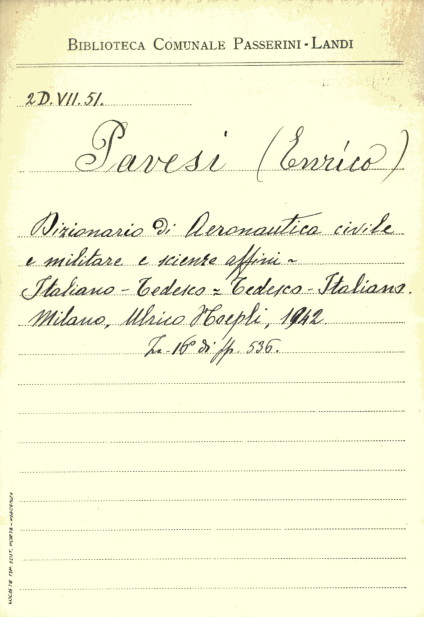 BIBLIOTECA COMUNALE PASSERINI-LANDI
2D.VII.51.
Pavesi (Enrico)
Dizionario di Aeronautica civile
e militare e scienze affini -
Italiano - Tedesco = Tedesco - Italiano.
Milano, Ulrico Hoepli, 1942.
In-16° di pp. 536.